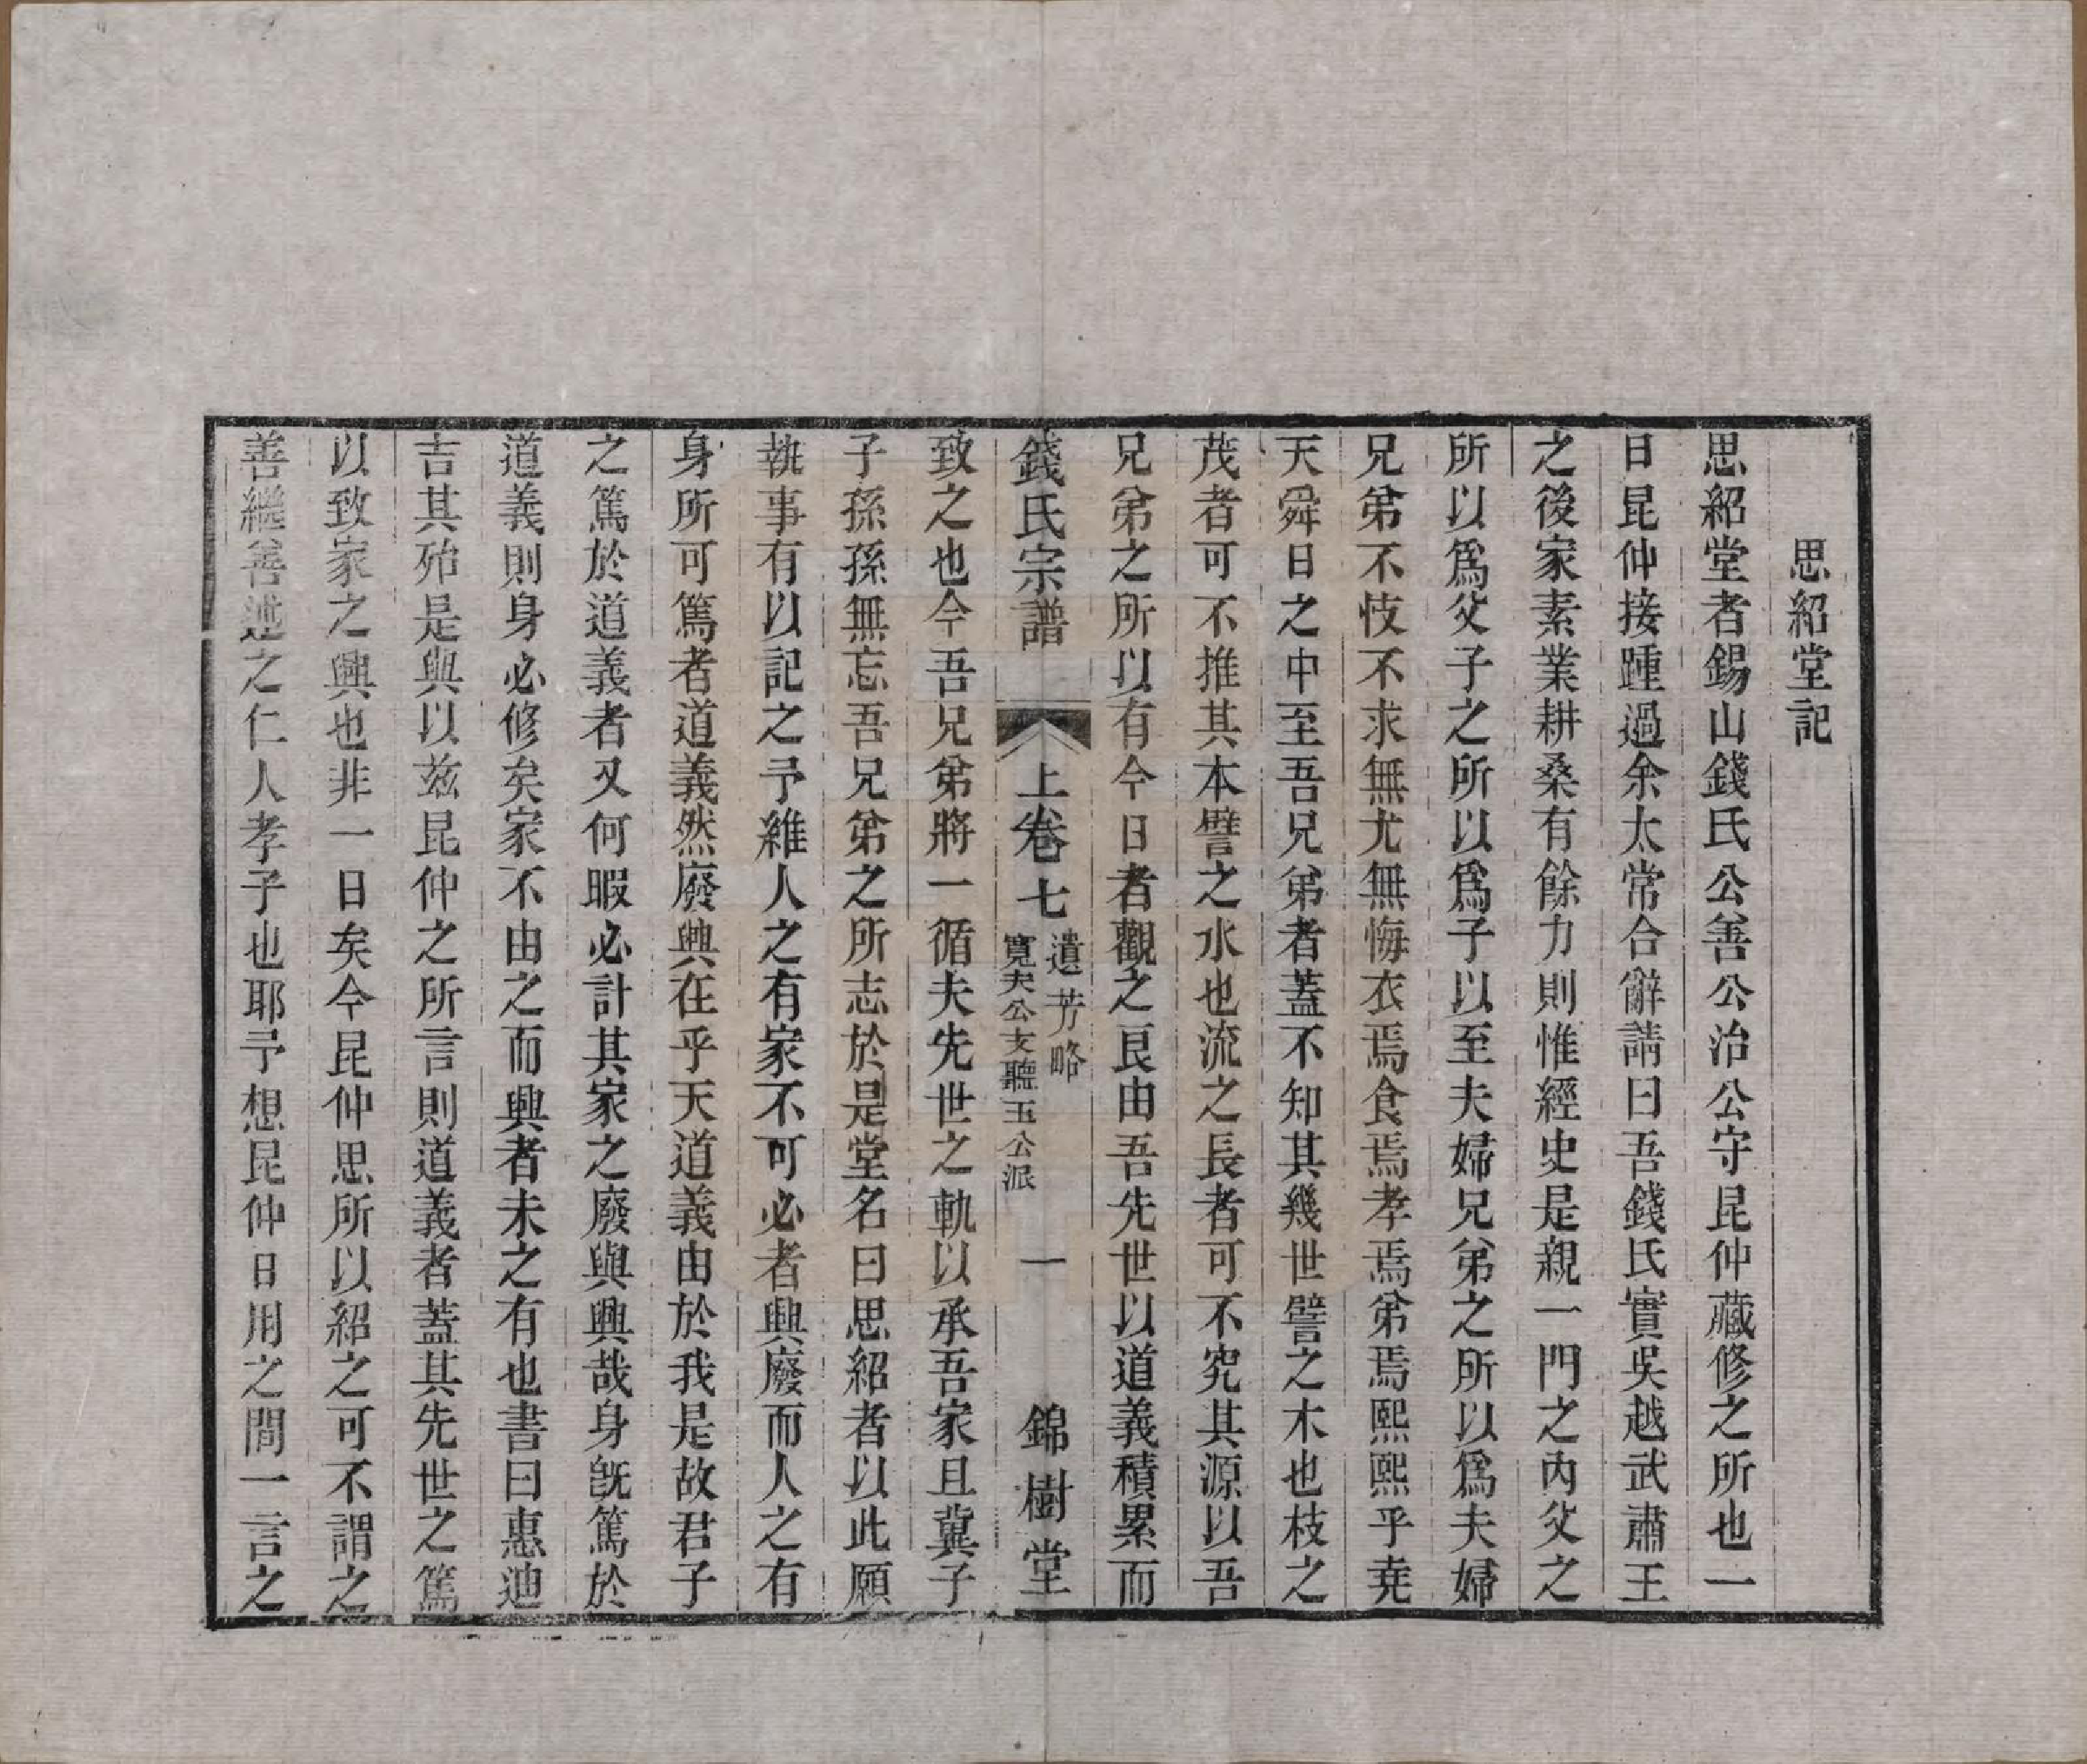 思紹堂記
思紹堂者錫山錢氏公善公治公守昆仲藏修之所也一
日昆仲接踵過余太常合辭請曰吾錢氏實吳越武肅王
之後家素業耕桑有餘力則惟經史是親一門之內父之
所以爲父子之所以爲子以至夫婦兄弟之所以爲夫婦
兄弟不忮不求無尤無悔衣焉食焉孝焉弟焉熙熙乎堯
天舜日之中至吾兄弟者蓋不知其幾世譬之木也枝之
茂者可不推其本譬之水也流之長者可不究其源以吾
兄弟之所以有今日者觀之良由吾先世以道義積累而
錢氏宗譜 上卷七 遺芳略 寬夫公支聽五公派 一 錦樹堂
致之也今吾兄弟將一循夫先世之軌以承吾家且冀子
子孫孫無忘吾兄弟之所志於是堂名曰思紹者以此願
執事有以記之予維人之有家不可必者興廢而人之有
身所可篤者道義然廢興在乎天道義由於我是故君子
之篤於道義者又何暇必計其家之廢與興哉身既篤於
道義則身必修矣家不由之而興者未之有也書曰惠迪
吉其殆是與以茲昆仲之所言則道義者蓋其先世之篤
以致家之興也非一日矣今昆仲思所以紹之可不謂之
善繼善述之仁人孝子也耶予想昆仲日用之間一言之